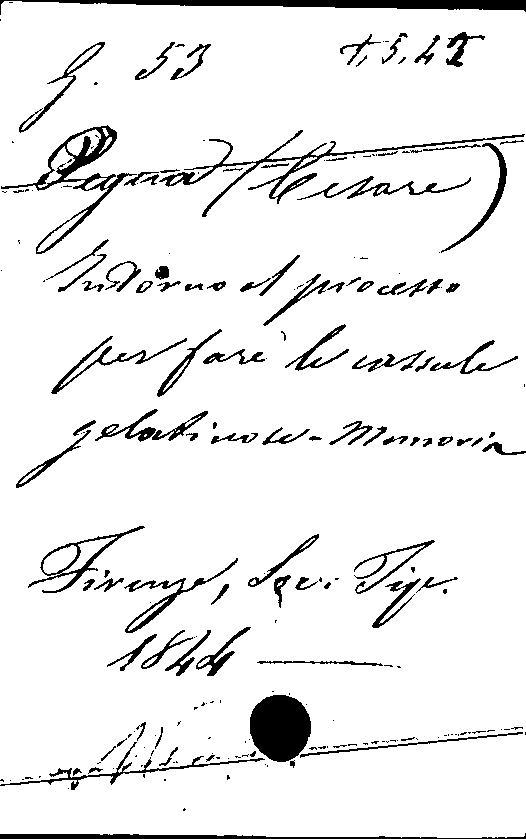 G. 53 +. 5. 42
Pegna (Cesare)
Intorno al processo
per fare le cassule
gelatinose - Memoria
Firenze, Soc. Tip.
1844